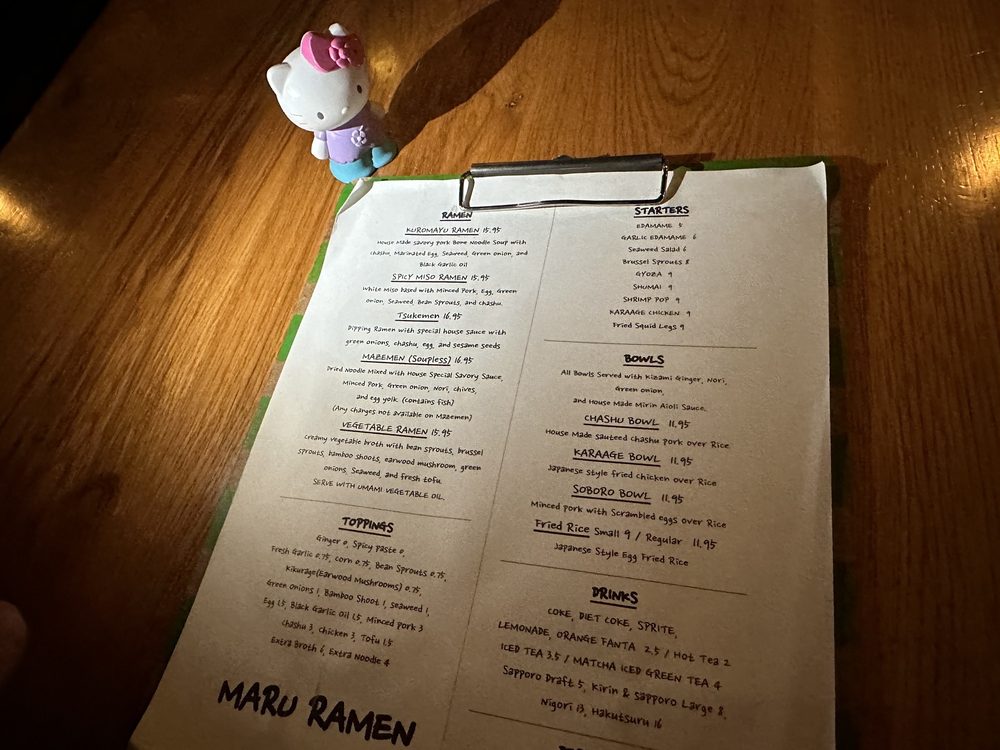 RAMEN
KUROMAYU RAMEN 15.95
House Made savory pork Bone Noodle Soup with
chashu, Marinated Egg, Seaweed, Green onion, and
Black Garlic Oil
SPICY MISO RAMEN 15.95
White Miso based with Minced Pork, Egg, Green
onion, Seaweed, Bean Sprouts, and chashu.
Tsukemen 16.95
Dipping Ramen with special house sauce with
green onions, chashu, egg, and sesame seeds
MAZEMEN (Soupless) 16.95
Dried Noodle Mixed with House Special Savory Sauce,
Minced Pork, Green onion, Nori, chives,
and egg yolk. (contains fish)
(Any changes not available on Mazemen)
VEGETABLE RAMEN 15.95
Creamy vegetable broth with bean sprouts, brussel
sprouts, bamboo shoots, earwood mushroom, green
onions, Seaweed, and fresh tofu.
SERVE WITH UMAMI VEGETABLE OIL.
TOPPINGS
Ginger 0, Spicy Paste 0,
Fresh Garlic 0.75, corn 0.75, Bean Sprouts 0.75,
Kikurage(Earwood Mushrooms) 0.75,
Green Onions 1, Bamboo Shoot 1, seaweed 1,
Egg 1.5, Black Garlic Oil 1.5, Minced pork 3
chashu 3, chicken 3, Tofu 1.5
Extra Broth 6, Extra Noodle 4
MARU RAMEN
STARTERS
EDAMAME 5
GARLIC EDAMAME 6
Seaweed Salad 6
Brussel Sprouts 8
GYOZA 9
SHUMAI 9
SHRIMP POP 9
KARAAGE CHICKEN 9
Fried Squid Legs 9
BOWLS
All Bowls Served with Kizami Ginger, Nori,
Green onion,
and House Made Mirin Aioli Sauce.
CHASHU BOWL 11.95
House Made sauteed chashu pork over Rice
KARAAGE BOWL 11.95
Japanese style fried chicken over Rice
SOBORO BOWL 11.95
Minced pork with Scrambled eggs over Rice
Fried Rice Small 9 / Regular 11.95
Japanese Style Egg Fried Rice
DRINKS
COKE, DIET COKE, SPRITE,
LEMONADE, ORANGE FANTA 2.5 / Hot Tea 2
ICED TEA 3.5 / MATCHA ICED GREEN TEA 4
Sapporo Draft 5, Kirin & Sapporo Large 8,
Nigori 13, Hakutsuru 16